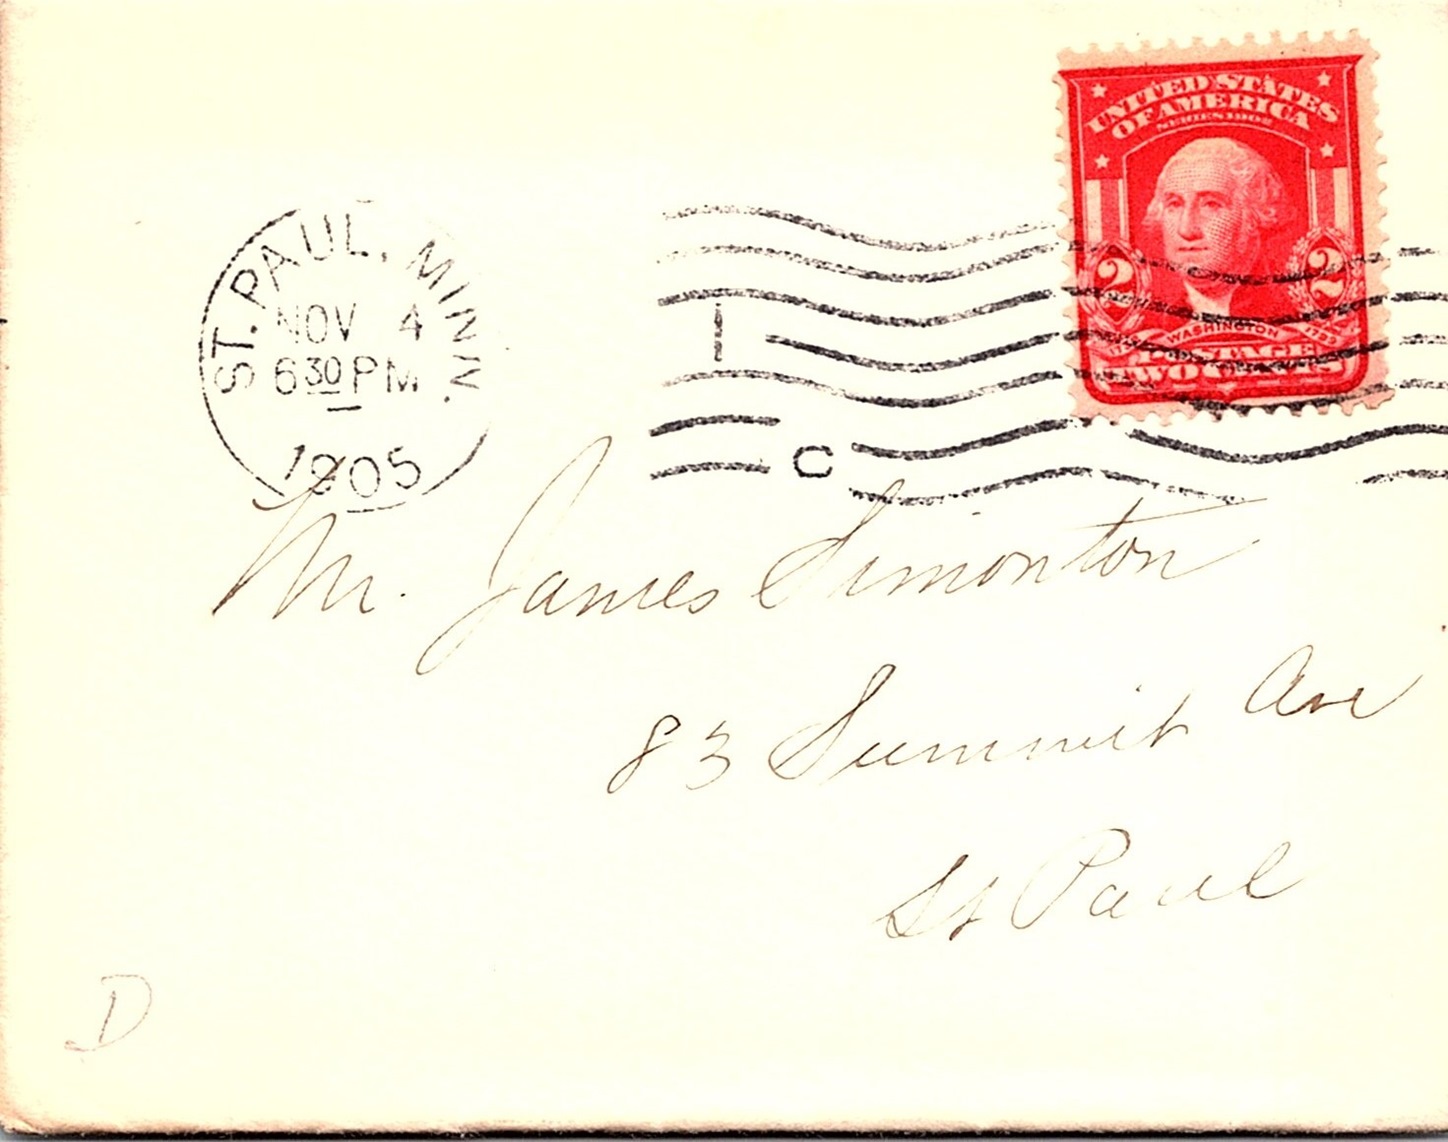 UNITED STATES
OF AMERICA
SERIES 1902
2 2
WASHINGTON 1799
POSTAGE
TWO CENTS
ST. PAUL, MINN.
NOV 4
6 30 PM
1905
1
C
Mr. James Simonton
83 Summit Ave
St Paul
D